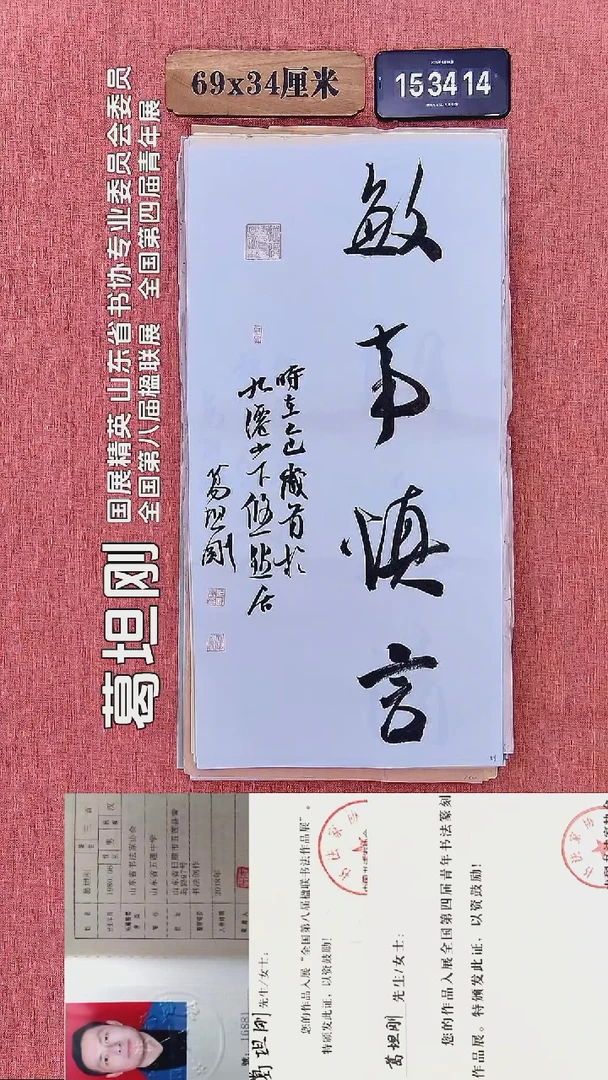 69x34厘米
15 34 14
敏事慎言
时在乙巳岁首於
九仙山下悠然居
葛坦刚
葛坦刚
国展精英 山东省书协专业委员会委员
全国第八届楹联展 全国第四届青年展
山东省书法家协会
山东省五莲中学
书法创作
葛坦刚 先生/女士：
您的作品入展“全国第八届楹联书法作品展”。
特颁发此证，以资鼓励！
葛坦刚 先生/女士：
您的作品入展全国第四届青年书法篆刻
作品展。特颁发此证，以资鼓励！